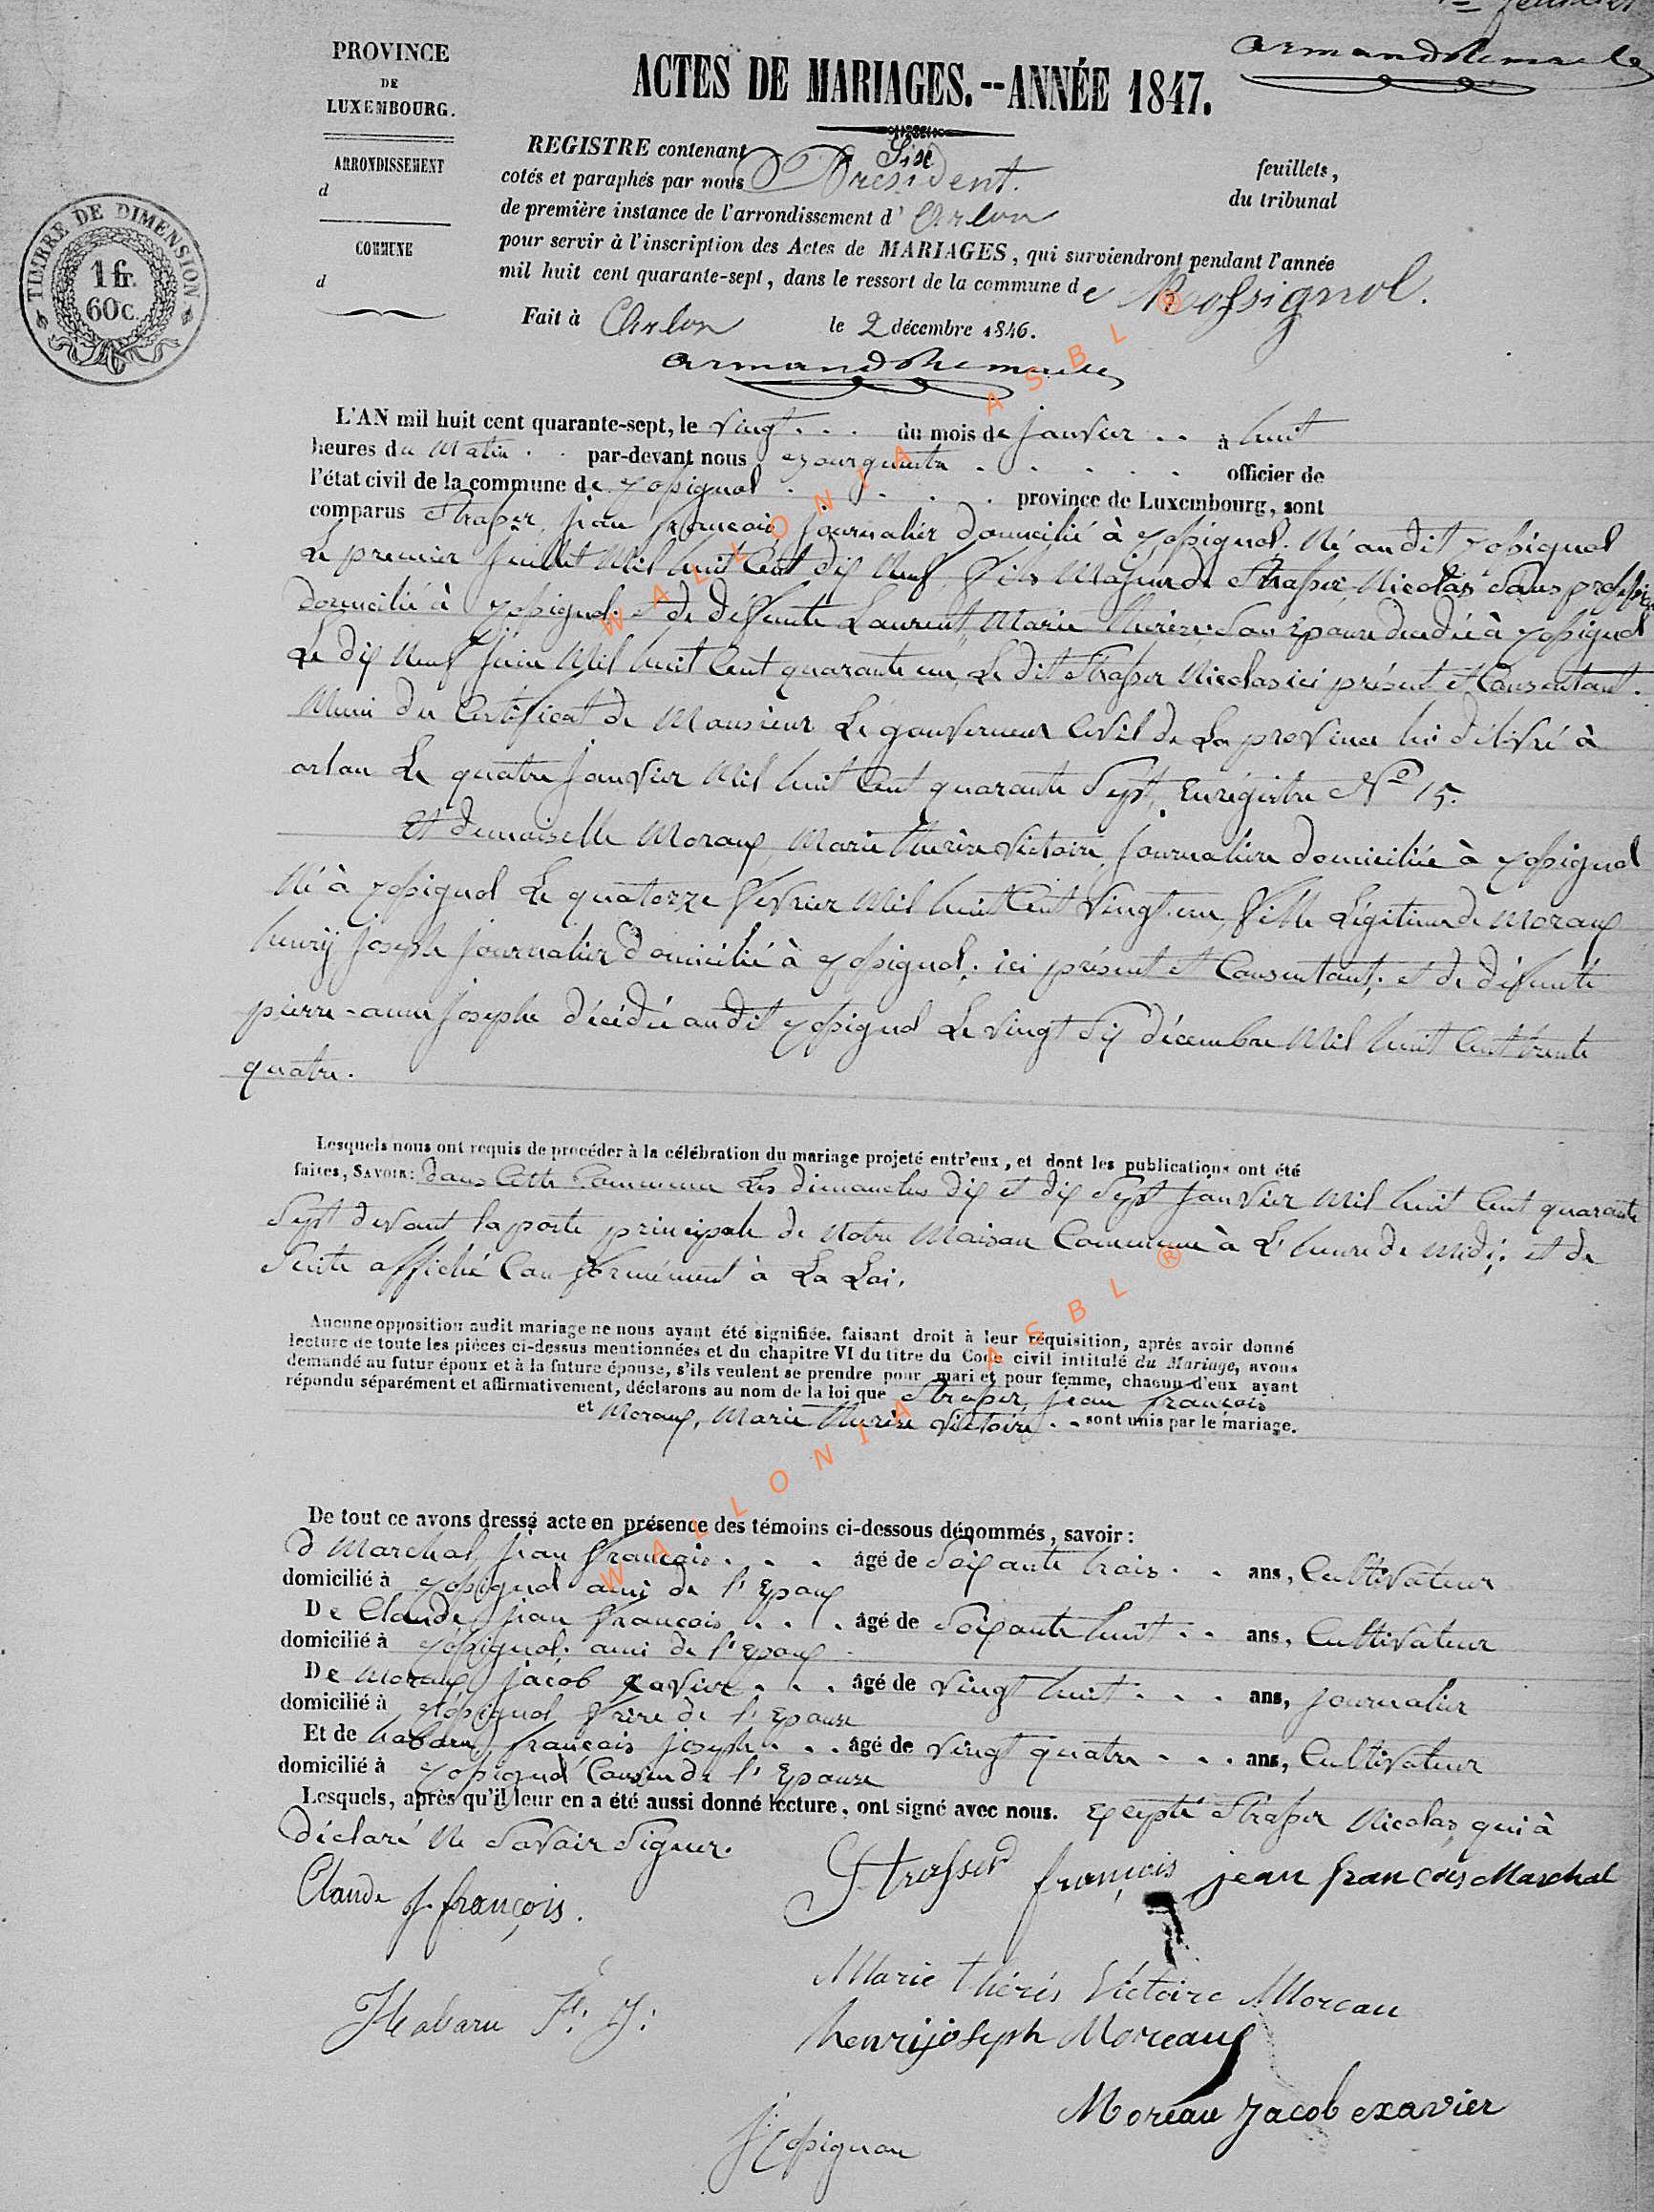 armand
PROVINCE
DE
LUXEMBOURG.
ARRONDISSEMENT
d
COMMUNE
d
TIMBRE DE DIMENSION.
1 fr.
60 c.
ACTES DE MARIAGES.--ANNÉE 1847.
REGISTRE contenant Six feuillets,
cotés et paraphés par nous Président. du tribunal
de première instance de l'arrondissement d' Arlon
pour servir à l'inscription des Actes de MARIAGES, qui surviendront pendant l'année
mil huit cent quarante-sept, dans le ressort de la commune de Rossignol.
Fait à Arlon le 2 décembre 1846.
armand
L'AN mil huit cent quarante-sept, le vingt . . . du mois de janvier . . à huit
heures du matin . . par-devant nous officier de
l'état civil de la commune de rossignol . . . . province de Luxembourg, sont
comparus Strasser, jean françois, journalier domicilié à rossignol. Né audit rossignol
Le premier juillet Mil huit Cent dix Neuf, fils Majeur de Strasser Nicolas sans profession
domicilié à rossignol et de défunte Laurent, Marie thérèse son Epouse décédée à rossignol
Le dix Neuf juin Mil huit Cent quarante un, Le dit Strasser Nicolas ici présent et Consentant.
Muni du Certificat de Monsieur Le gouverneur Civil de La province lui délivré à
arlon Le quatre janvier Mil huit Cent quarante Sept, Enrégistre No 15.
Et demoiselle Moraux, Marie thérèse Victoire, journalière domiciliée à rossignol
Né à rossignol Le quatorze février Mil huit Cent vingt un, fille Légitime de Moraux
henrÿ joseph journalier domicilié à rossignol; ici présent et Consentant; et de défunte
pierre-anne josephe décédée audit rossignol Le vingt Six décembre Mil huit Cent trente
quatre.
Lesquels nous ont requis de procéder à la célébration du mariage projeté entr'eux, et dont les publications ont été
faites, SAVOIR: dans Cette Commune Les dimanches dix et dix Sept janvier Mil huit Cent quarante
Sept devant la porte principale de Notre Maison Commune à L'heure de Midi; et de
Suite affiché Conformément à La Loi.
Aucune opposition audit mariage ne nous ayant été signifiée, faisant droit à leur réquisition, après avoir donné
lecture de toute les pièces ci-dessus mentionnées et du chapitre VI du titre du Code civil intitulé du Mariage, avons
demandé au futur époux et à la future épouse, s'ils veulent se prendre pour mari et pour femme, chacun d'eux ayant
répondu séparément et affirmativement, déclarons au nom de la loi que Strasser, jean françois
et Moraux, Marie thérèse Victoire . . sont unis par le mariage.
De tout ce avons dressé acte en présence des témoins ci-dessous dénommés, savoir :
D Marchal, jean françois . . . âgé de Soixante trois . . ans, Cultivateur
domicilié à rossignol ami de l'Epoux
De Claude, jean françois . . . âgé de Soixante huit . . ans, Cultivateur
domicilié à rossignol. ami de l'Epoux
De moraux jacob xavier . . . âgé de vingt huit . . . ans, journalier
domicilié à rossignol frère de l'Epouse
Et de habaru françois joseph . . . âgé de vingt quatre . . . ans, Cultivateur
domicilié à rossignol Cousin de l'Epouse
Lesquels, après qu'il leur en a été aussi donné lecture, ont signé avec nous. Excepté Strasser Nicolas qui à
déclaré Ne Savoir Signer.
Claude J. françois. Strasser françois jean francois Marchal
Marie thérés Victoire Moreau
Habaru F. J:
henrijoseph Moreaux
Moreau Jacob exavier
WALLONIA ASBL ®
WALLONIA ASBL ®